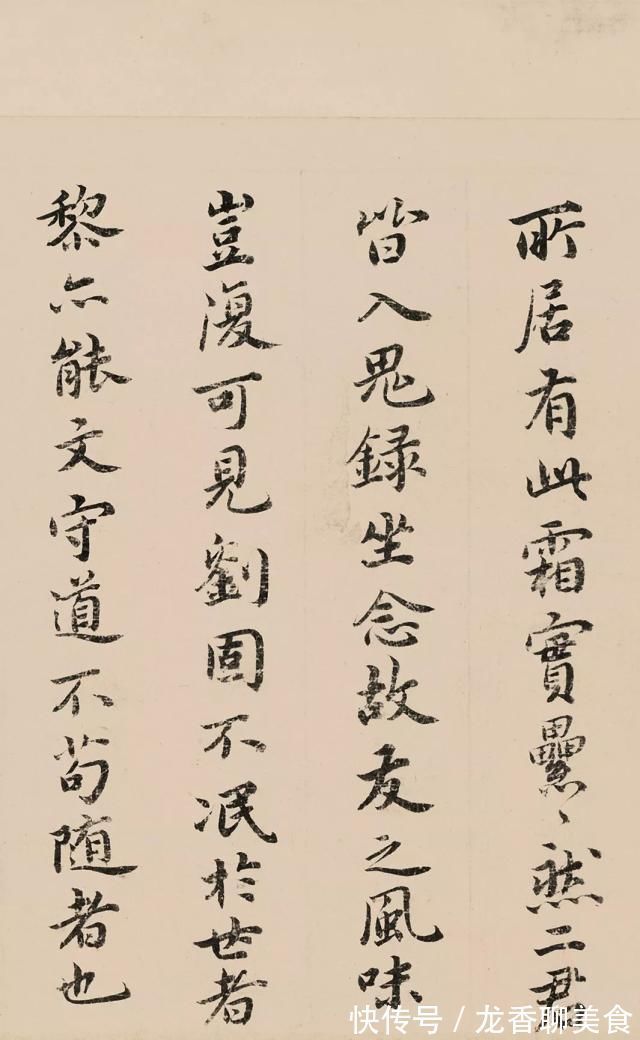 所居有此霜實纍〻然二君
皆入鬼録坐念故友之風味
豈復可見劉固不泯於世者
黎亦能文守道不苟随者也
快传号/龙香聊美食